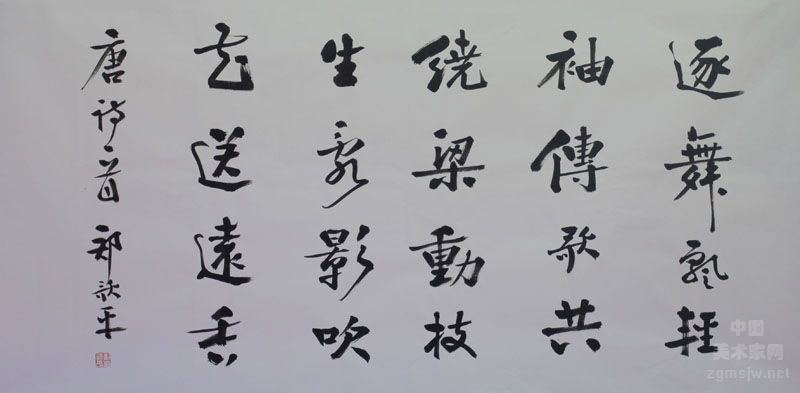 逐舞飘輕
袖傳歌共
繞梁動枝
生亂影吹
花送遠香
唐诗一首 郑歌平
中国
美术家网
zgmsjw.net